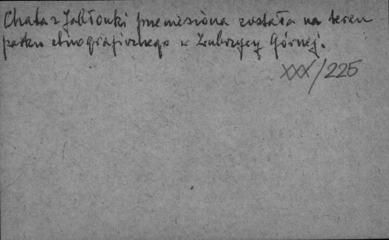 Chata z Jabłonki przeniesiona została na teren
parku etnograficznego w Zubrzycy Górnej.
XXX/225